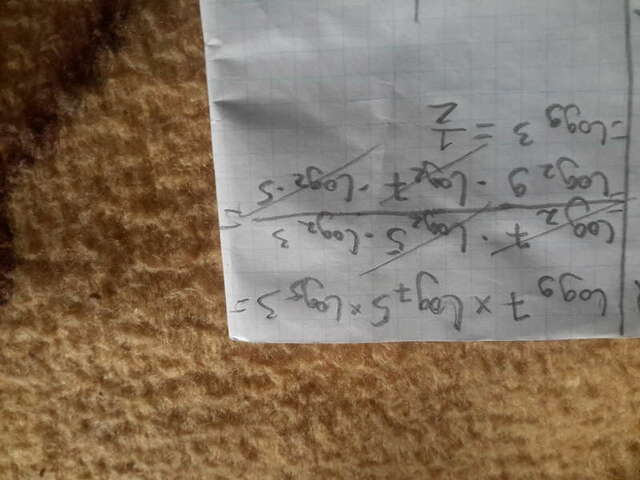 log₉ 7 × log₇ 5 × log₅ 3 =
= log₂ 7 · log₂ 5 · log₂ 3 =
log₂ 9 · log₂ 7 · log₂ 5
= log₉ 3 = 1/2